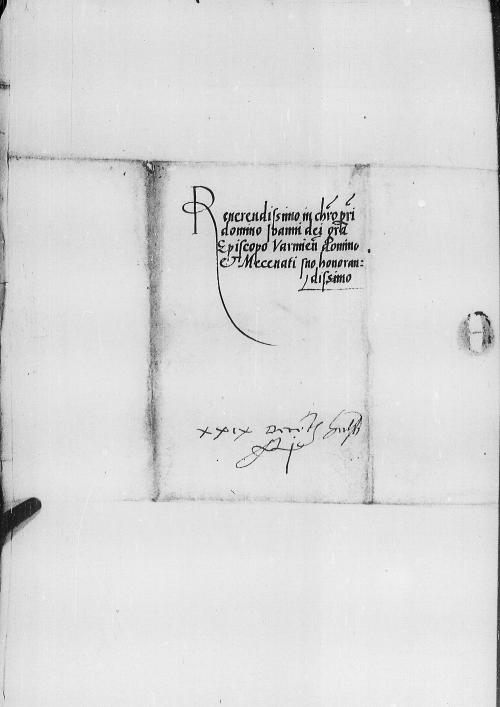 Reverendissimo in chro pri
domino Ioanni dei gra
Episcopo Varmien domino
et Mecenati suo honoran:
dissimo
xxix